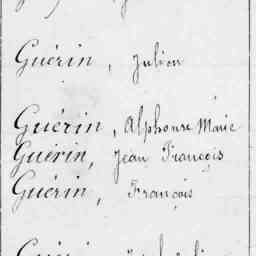 Guérin, Julien
Guérin, Alphonse Marie
Guérin, Jean François
Guérin, François